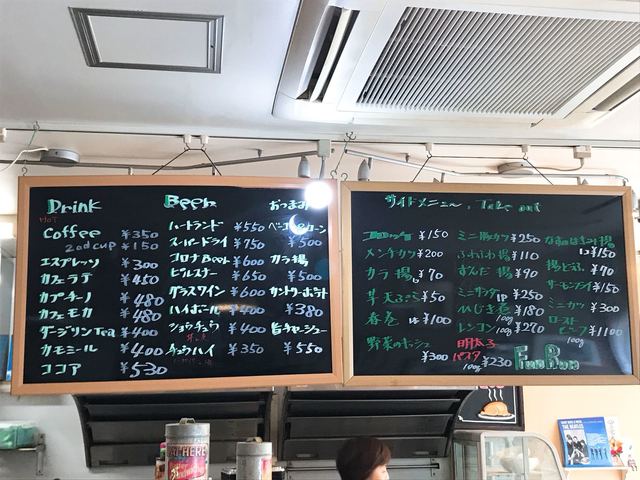 Drink
HOT
Coffee ¥350
2nd cup ¥150
エスプレッソ ¥300
カフェラテ ¥450
カプチーノ ¥480
カフェモカ ¥480
ダージリンTea ¥400
カモミール ¥400
ココア ¥530
Beer
ハートランド ¥550
スーパードライ ¥750
コロナBeer ¥600
ピルスナー ¥650
グラスワイン ¥600
ハイボール ¥400
ショウチュウ ¥400
チュウハイ ¥350
おつまみ
¥500
カラ揚
¥500
カントリーポテト
¥380
旨チャーシュー
¥550
サイドメニュー, Take out
コロッケ ¥150
メンチカツ ¥200
カラ揚 ¥70
芋天ぷら ¥50
春巻 ¥100
野菜のキッシュ
¥300
ミニ豚カツ ¥250
ふわふわ揚 ¥110
ずんだ揚 ¥90
ミニサラダ 1P ¥250
ひじき煮 100g ¥180
レンコン 100g ¥270
明太子
パスタ 100g ¥230
なすのはさみ揚
¥150
揚どうふ ¥90
サーモンフライ ¥150
ミニカツ ¥300
ロースト
ビーフ ¥1100
100g
Fun Run
THE BEATLES